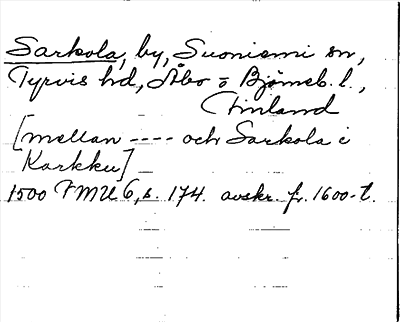 Sarkola, by, Suoniemi sn,
Tyrvis hd, Åbo o Björneb. l.,
Finland
[mellan ---- och Sarkola i
Karkku]
1500 FMU 6, s. 174. avskr. fr. 1600-t.